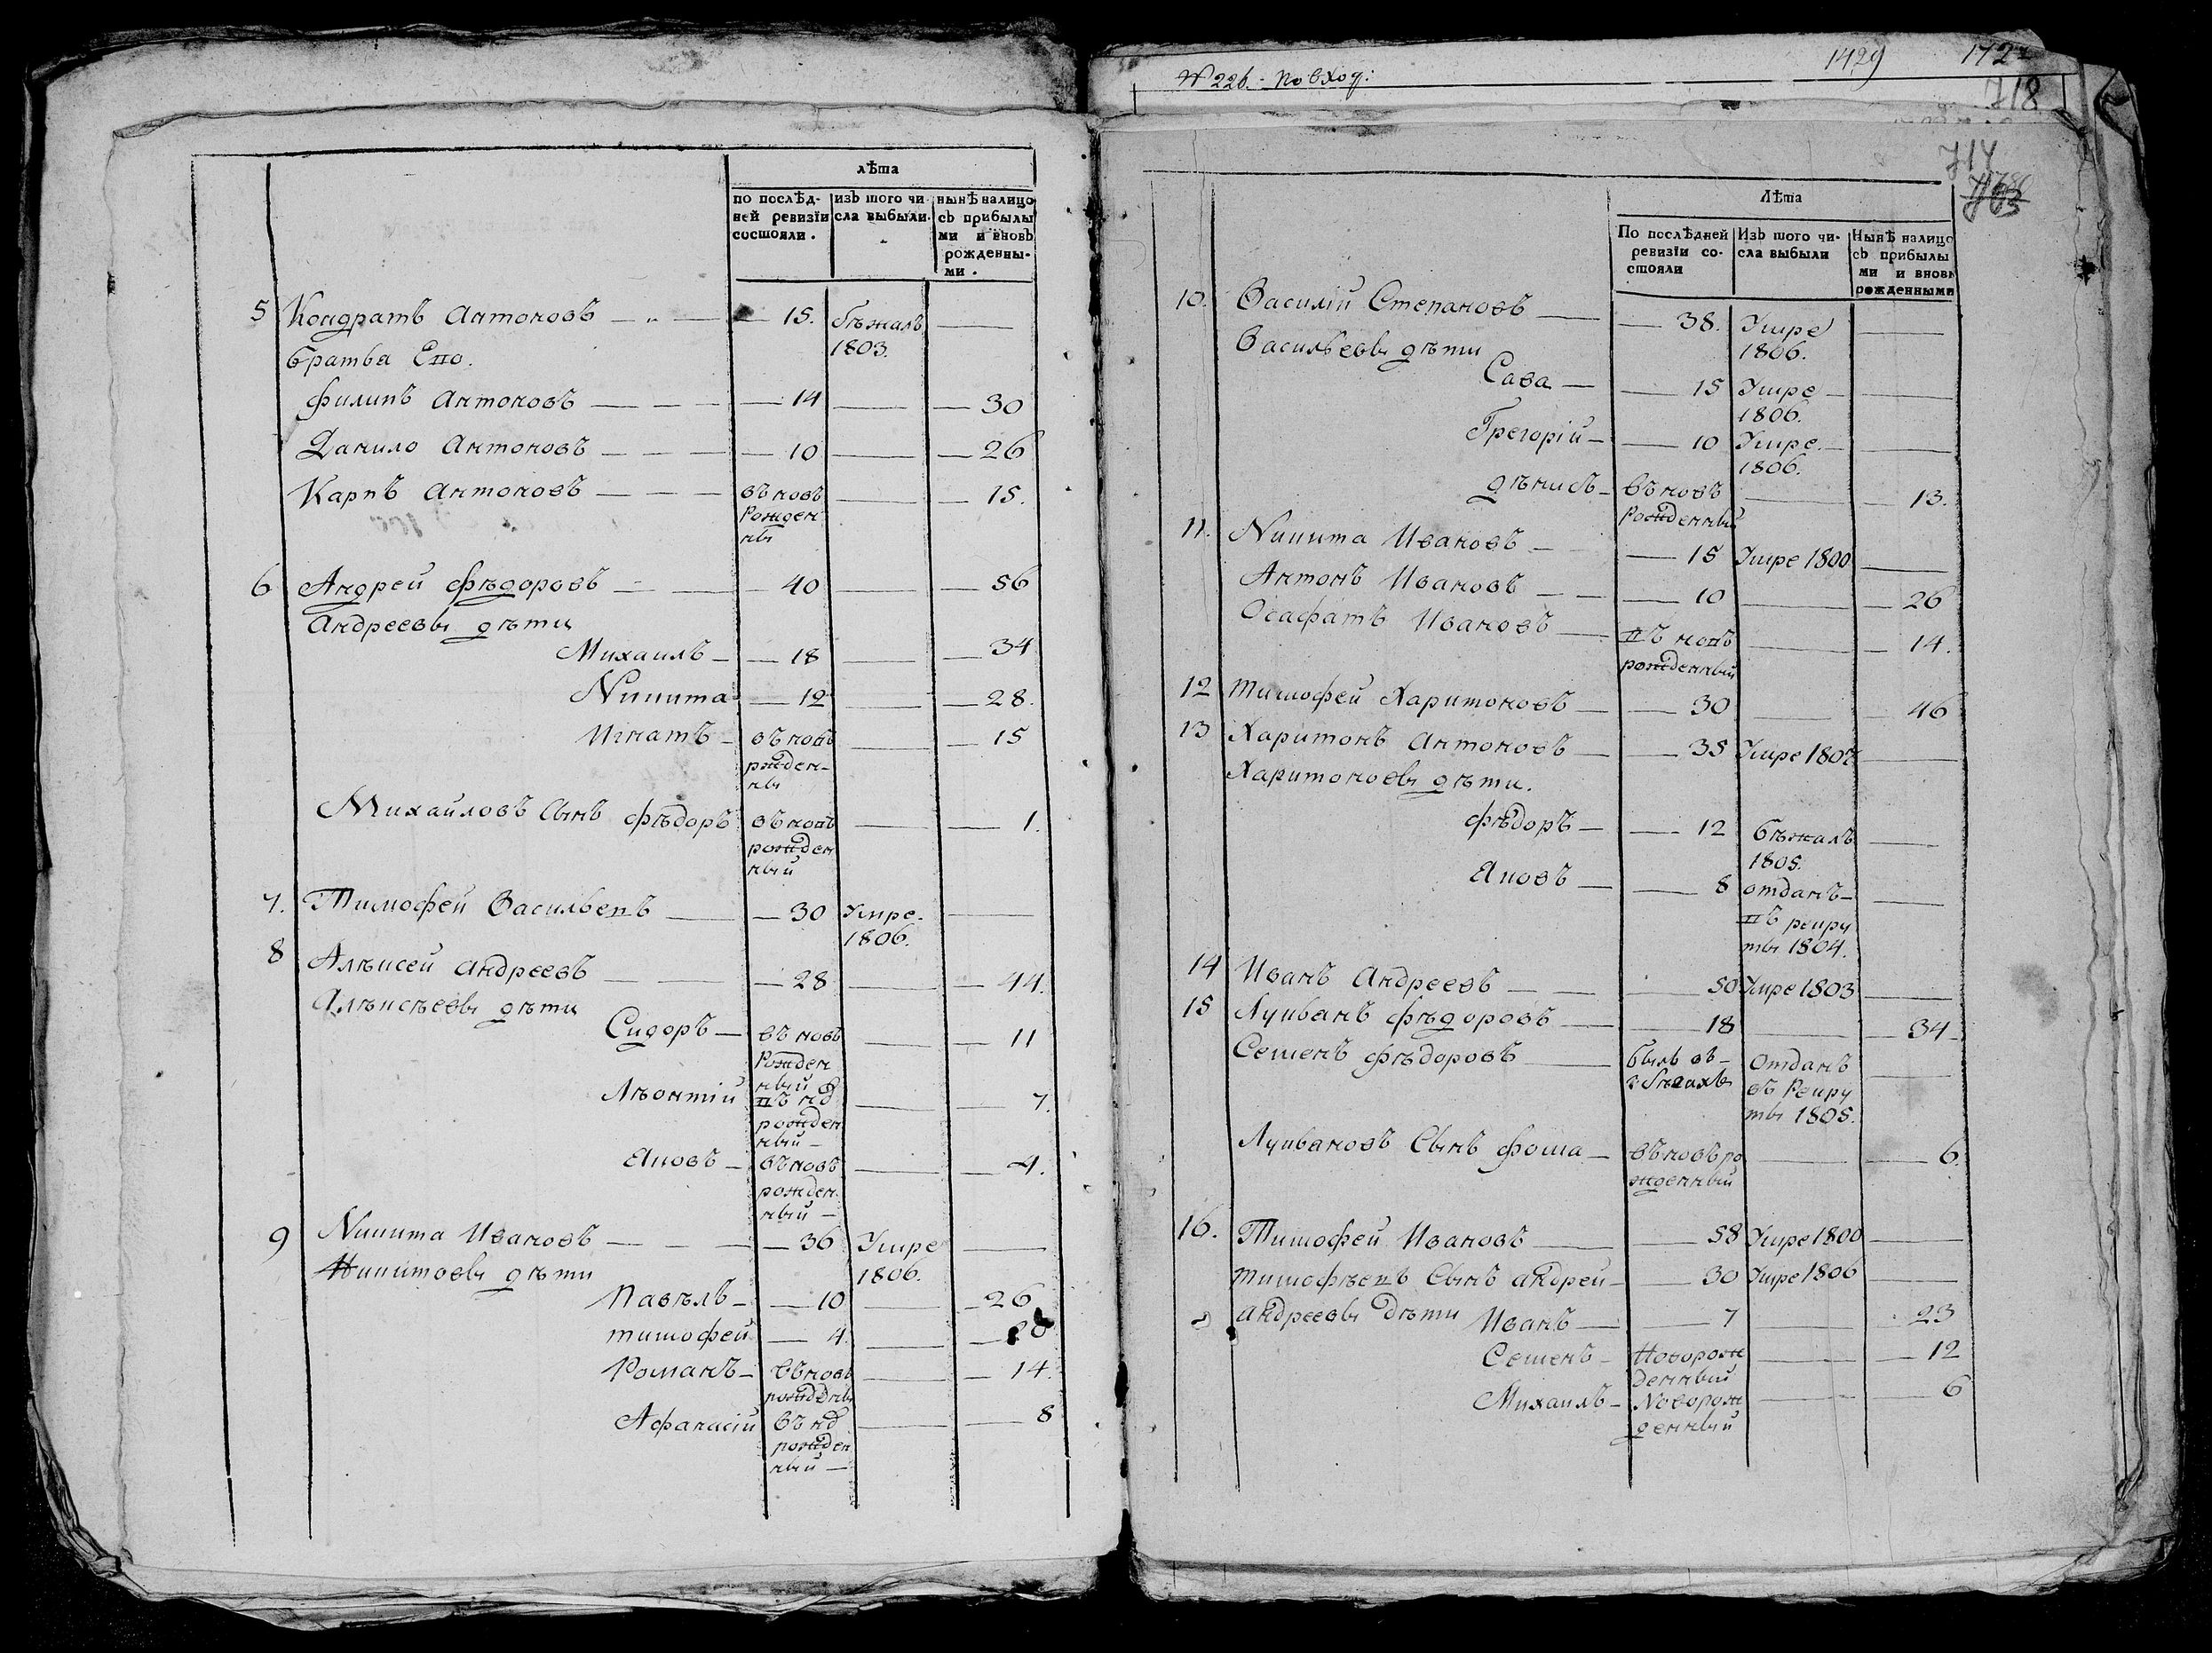 лѣта
по послѣд-
ней ревизїи
состояли.
изъ того чи-
сла выбыли.
нынѣ налицо
съ прибылы
ми и вновь
рожденны-
ми.
5 Кондратъ Антоновъ — 15. бѣжалъ —
1803.
братья Его.
Филипъ Антоновъ — 14 — 30
Данило Антоновъ — 10 — 26
Карпъ Антоновъ — въ новъ — 15.
рожден
ны
6 Андрей Фѣдоровъ — 40 — 56
Андреевы дѣти
Михаилъ — 18 — 34
Никита — 12 — 28.
Игнатъ — въ новъ — 15
рожден-
ны
Михайловъ Сынъ Фѣдоръ въ новъ — 1.
рожден
ный
7. Тимофей Васильевъ — 30 Умре. —
1806.
8 Алѣксей Андреевъ — 28 — 44.
Алѣксѣевы дѣти
Сидоръ — въ новъ — 11
рожден
ный
Лѣонтій въ но — 7.
рожден
ный —
Яковъ — въ новъ — 4.
рожден
ный —
9 Никита Ивановъ — 36 Умре —
1806.
Никитовы дѣти
Павѣлъ — 10 — 26
Тимофей — 4. — 20
Романъ — въ новъ — 14.
рожденъ
Афанасій въ но — 8
рожден
ный —
№ 226. по вход:
1429
718
714
Лѣта
По послѣдней
ревизїи со-
стояли
Изъ того чи-
сла выбыли
Нынѣ налицо
съ прибылы
ми и вновь
рожденными
10. Василій Степановъ — 38. Умре —
1806.
Васильевы дѣти
Сава — 15 Умре —
1806.
Грегорій — 10 Умре. —
1806.
дѣнисъ — въ новъ — 13.
рожденный
11. Никита Ивановъ — 15 Умре 1800 —
Антонъ Ивановъ — 10 — 26
Осафатъ Ивановъ — въ новъ — 14.
рожденный
12 Тимофей Харитоновъ — 30 — 46
13 Харитонъ Антоновъ — 35 Умре 1807 —
Харитоновы дѣти.
Фѣдоръ — 12 бѣжалъ —
1805.
Яковъ — 8 отданъ —
въ рекру
ты 1804.
14 Иванъ Андреевъ — 50 Умре 1803 —
15 Лукьянъ Фѣдоровъ — 18 — 34
Семенъ Фѣдоровъ — былъ въ — отданъ —
бѣгахъ въ Рекру
ты 1805.
Лукьяновъ Сынъ Фома — въ новъ ро — 6.
жденный
16. Тимофей Ивановъ — 58 Умре 1800 —
Тимофѣевъ Сынъ Андрей — 30 Умре 1806 —
Андреевы дѣти Иванъ — 7 — 23
Семенъ —Новорож — 12
денный
Михаилъ — Новорож — 6
денный